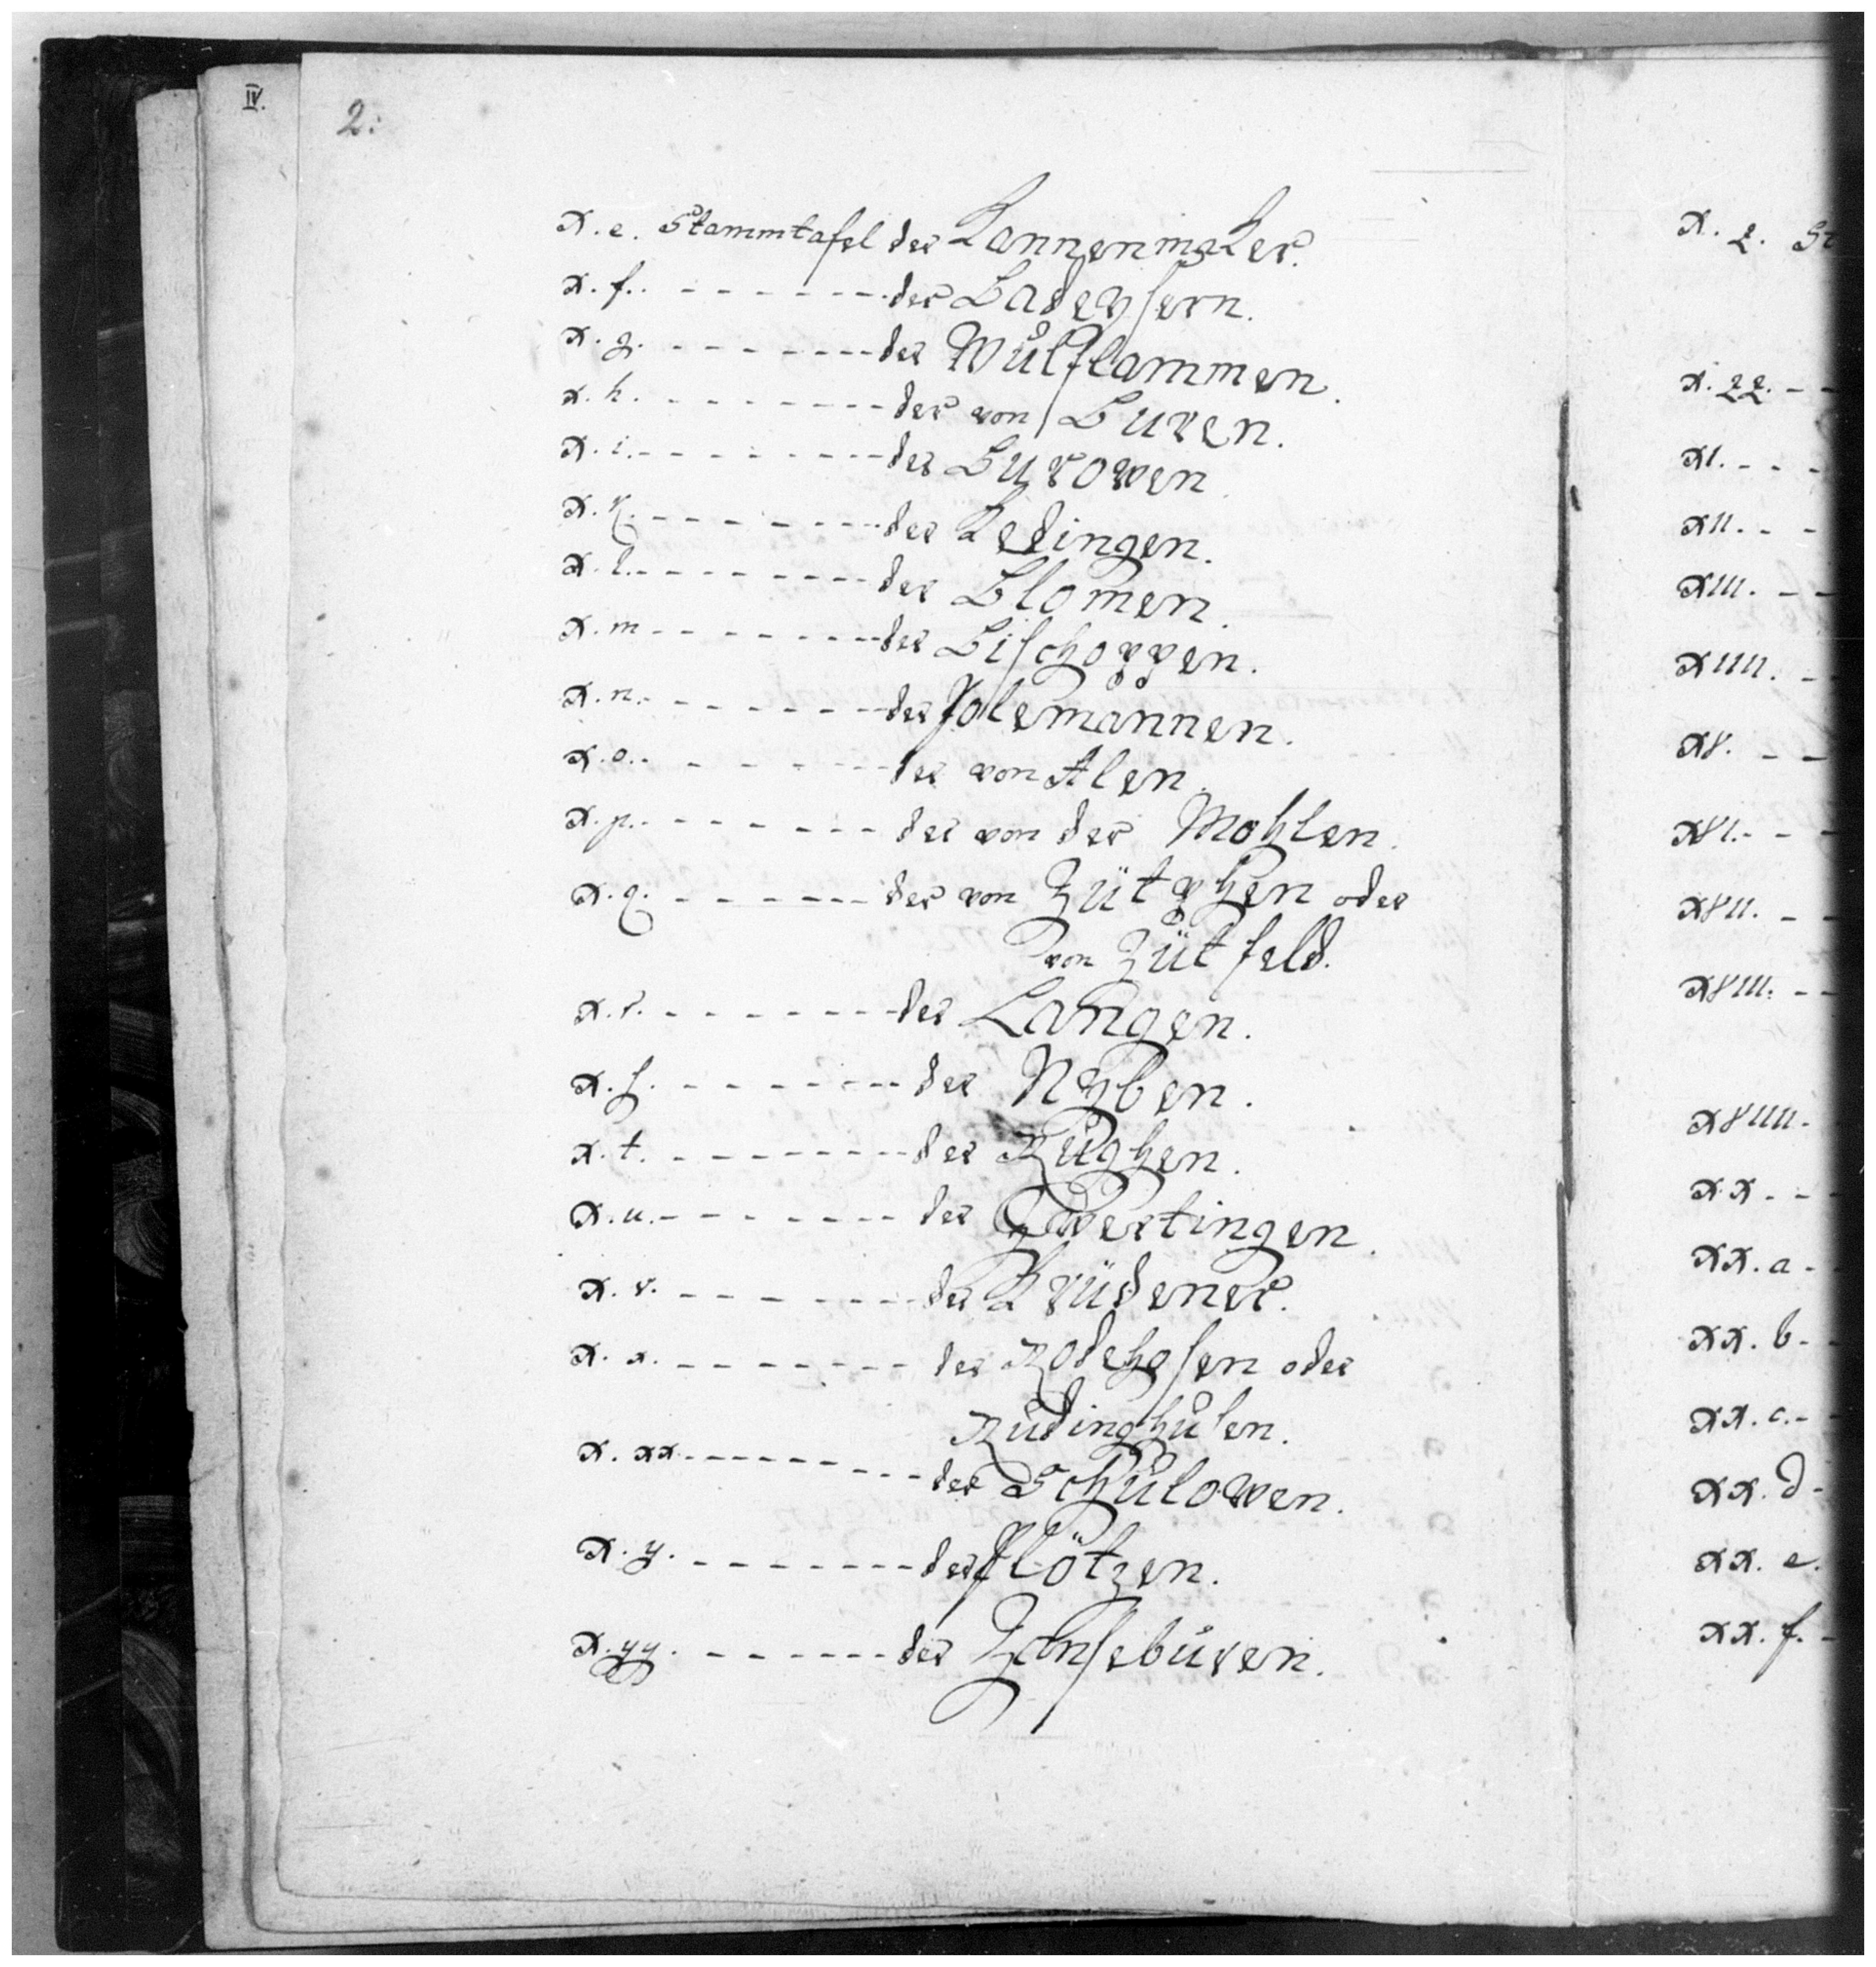 IV.
2:
X. e. Stammtafel der Kannenmaker.
X. f. - - - - - - - der Badeysern.
X. g. - - - - - - - der Wulflammen.
X. h. - - - - - - - der von Buren.
X. i. - - - - - - - der Burowen
X. k. - - - - - - - der Kedingen.
X. l. - - - - - - - der Blomen.
X. m - - - - - - - der Bischoppen.
X. n. - - - - - - - der Jolemannen.
X. o. - - - - - - - der von Alen.
X. p. - - - - - - - der von der Mohlen.
X. q. - - - - - - - der von Zütphen oder
von Zütfeld.
X. r. - - - - - - - der Langen.
X. s. - - - - - - - der Nyben.
X. t. - - - - - - - der Rughen.
X. u. - - - - - - - der Qwertingen.
X. v. - - - - - - - der Krüdener.
X. x. - - - - - - - der Rodehosen oder
Rudinghusen.
X. xx. - - - - - - - der Schulowen.
X. y. - - - - - - - der Flötzen.
X. yy. - - - - - - - der Zanseburen.
X. z. St
X. zz. - -
XI. - - -
XII. - -
XIII. - -
XIIII. -
XV. - -
XVI. - -
XVII. - -
XVIII. - -
XVIIII.
XX - -
XX. a -
XX. b -
XX. c. -
XX. d -
XX. e.
XX. f. -